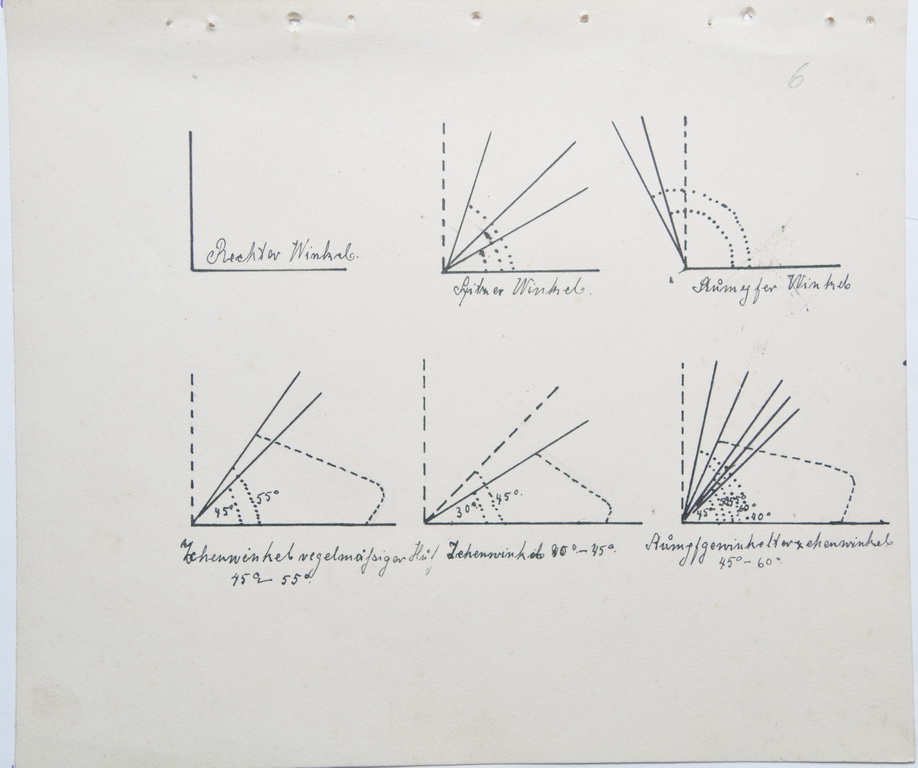 6
Rechter Winkel.
Spitzer Winkel.
Stumpfer Winkel
45° 55°
30° 45°.
45°
60°
Zehenwinkel regelmässiger Huf
45°– 55°.
Zehenwinkel 30°–45°.
Stumpfgewinkelter zehenwinkel
45°– 60°